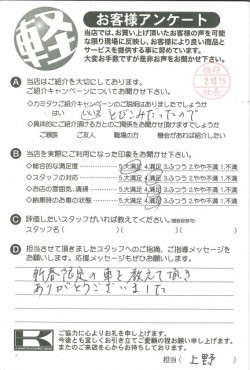 軽
お客様アンケート
当店では、お買い上げ頂いたお客様の声を可能
な限り現場に反映し、お客様により良い商品と
サービスを提供する事に努めています。
大変お手数ですが是非お声をお聞かせ下さい。
A 当店はご紹介を大切にしております。
ご紹介キャンペーンについてお聞かせ下さい。
・カミタケご紹介キャンペーンのご説明はありましたでしょうか
はい いいえ
◇具体的にご紹介頂ける方とのご関係をお聞かせ頂けますでしょうか
ご親族 ご友人 職場の方 機会があれば紹介したい
B 当店を実際にご利用になった印象をお聞かせ下さい。
◇総合的な満足度 5.大満足 4.満足 3.ふつう 2.やや不満 1.不満
◇スタッフの対応 5.大満足 4.満足 3.ふつう 2.やや不満 1.不満
◇お店の雰囲気、清掃 5.大満足 4.満足 3.ふつう 2.やや不満 1.不満
◇納車時のお車の状態 5.大満足 4.満足 3.ふつう 2.やや不満 1.不満
C 評価したいスタッフがいれば教えてください。(複数回答可)
スタッフ名( )( )( )
D 担当させて頂きましたスタッフへのご指摘、ご指導メッセージを
お願いします。応援メッセージもぜひお願いします。
新春限定の車を教えて頂き
ありがとうございました
K
ご協力に心よりお礼を申し上げます。
今後とも宜しくお引き立てご愛顧の程お願い申し上げます。
またのご来店を心からお待ちしております。
担当(上野)